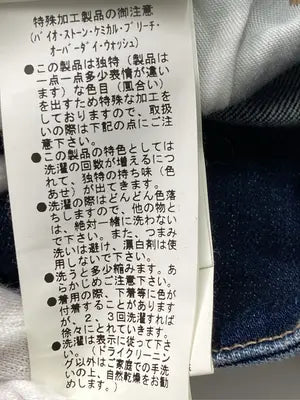 特殊加工製品の御注意
(バイオ・ストーン・ケミカル・ブリーチ・
オーバーダイ・ウォッシュ)
●この製品は独特(製品は
一点一点多少表情が違い
ます)な色目(風合い)
を出すため特殊な加工をし
ておりますので、取扱
いの際は下記の点にご注
意下さい。
●この製品の特色としては
洗濯の回数が増えるにつ
れて、独特の持ち味(色
あせ)が出てきます。
●洗濯の際はどんどん色落
ちしますので、他の物と
は、絶対一緒に洗わない
で下さい。また、つまみ
洗いは避け、漂白剤は使
用しないで下さい。
●洗うと多少縮みます。あ
らかじめご注意下さい。
●着用の際、下着等に色が
付着することがあります
が、2、3回洗濯すれば
徐々にとれていきます。
●洗濯は表示に従って下さ
い。(ドライクリーニン
グ以外はご家庭での手洗
いの上、自然乾燥をお勧
めします。)